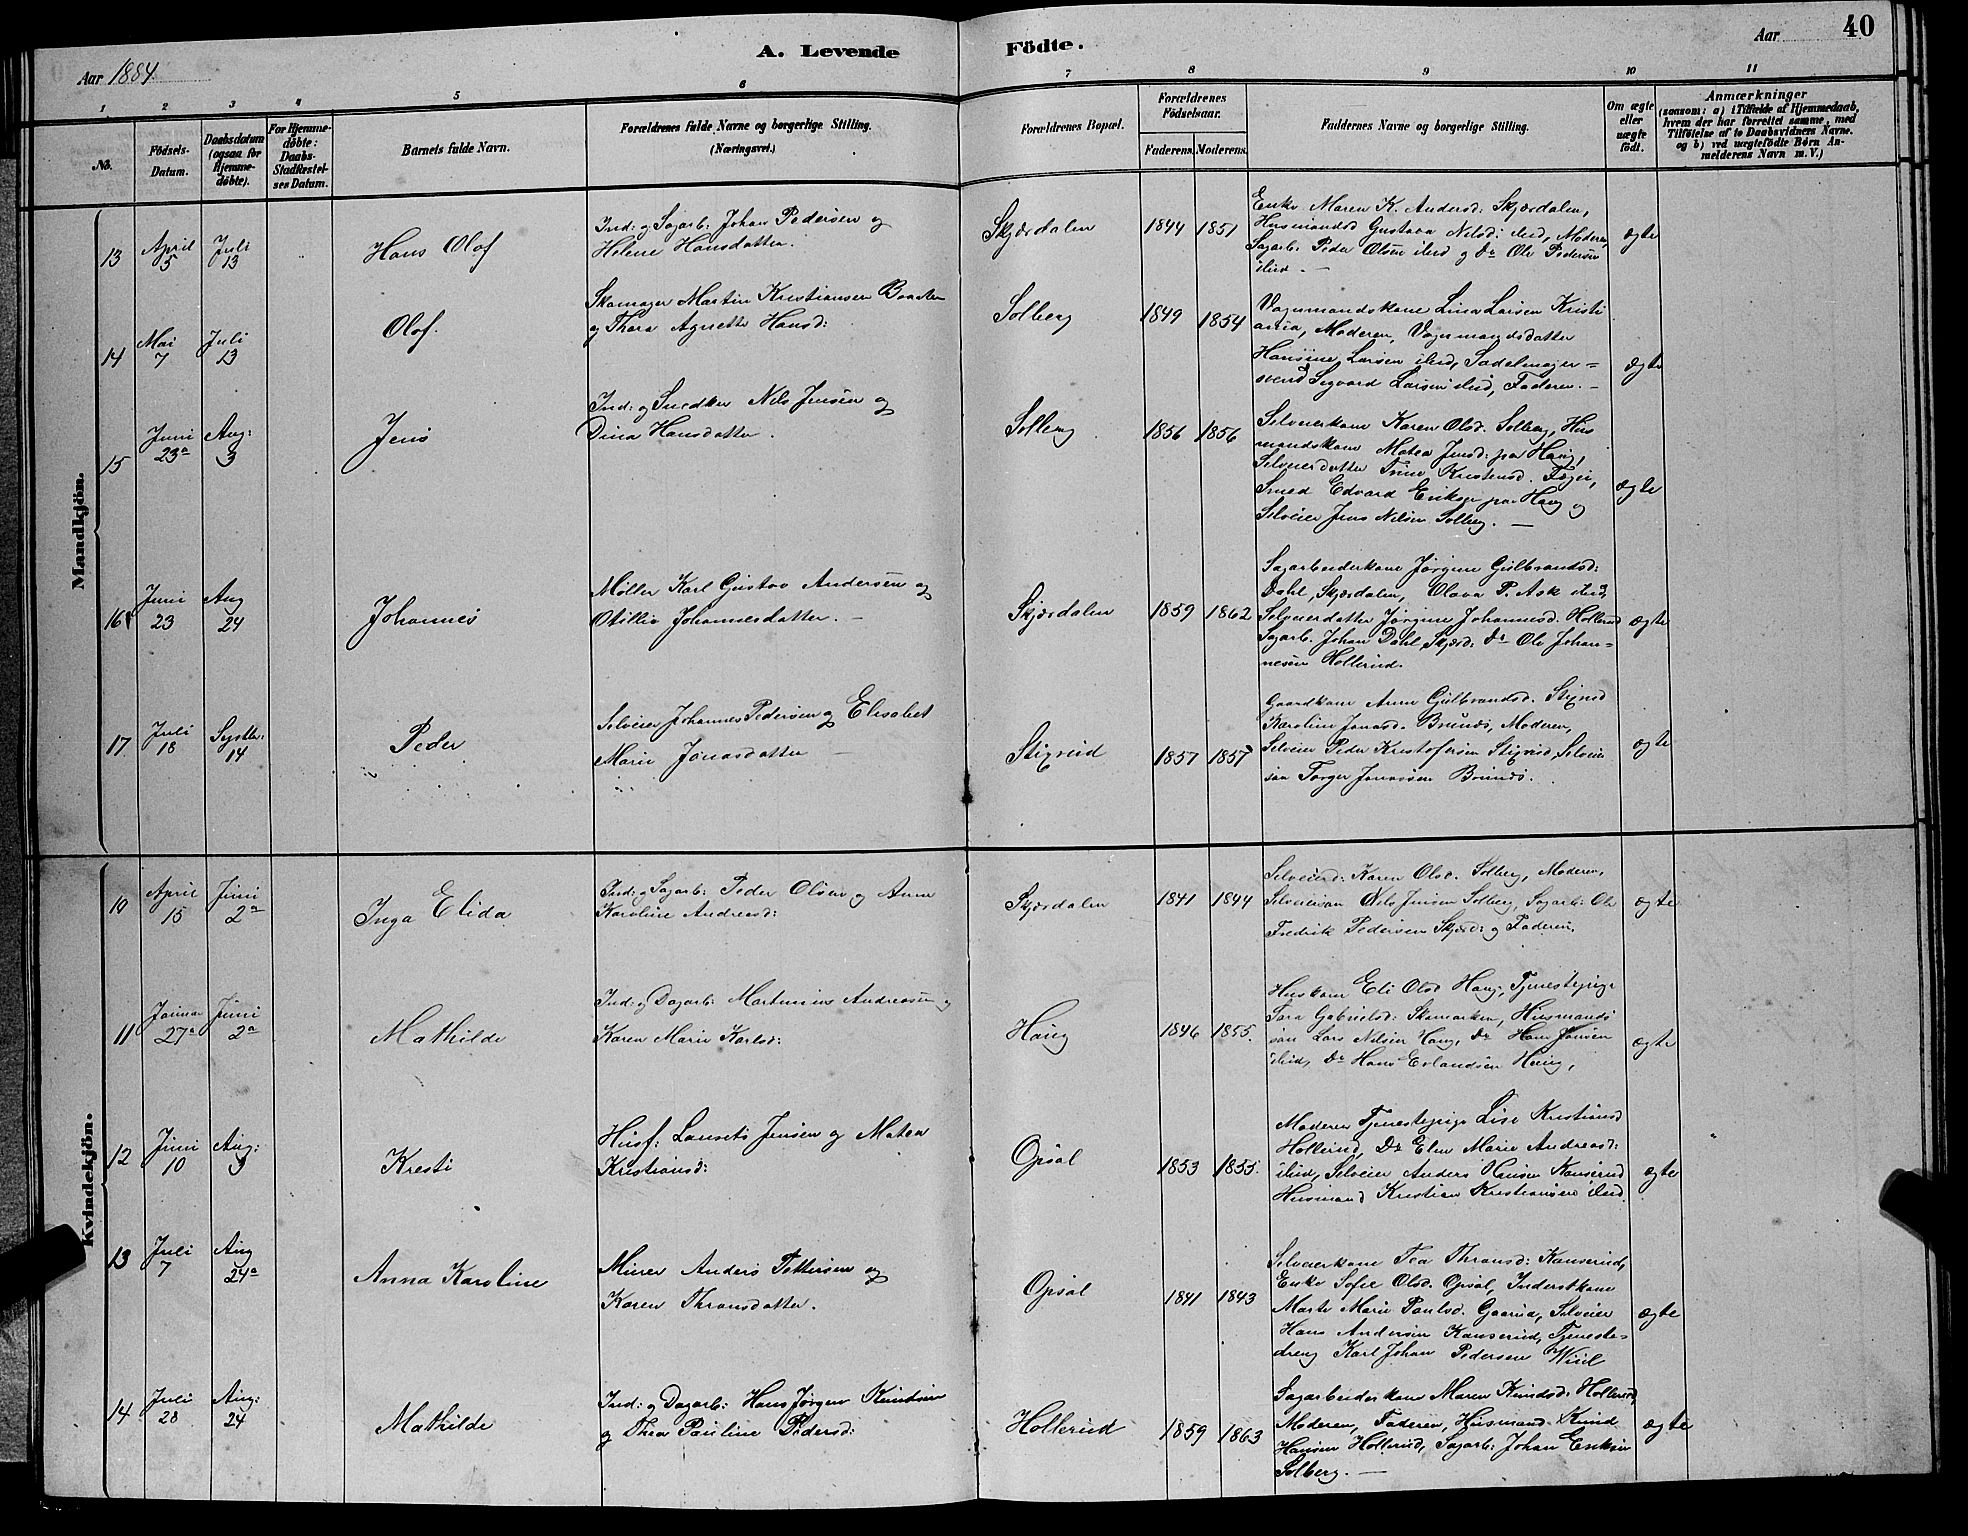 Aar 1884
A. Levende
Födte.
Aar
40
1
2
3
4
5
6
7
8
9
10
11
No.
Födsels-
Datum.
Daabsdatum
(ogsaa for
Hjemme-
döbte).
For Hjemme-
döbte:
Daabs-
Stadfæstel-
ses Datum.
Barnets fulde Navn.
Forældrenes fulde Navne og borgerlige Stilling.
(Næringsvei.)
Forældrenes Bopæl.
Forældrenes
Födselsaar.
Faderens.
Moderens.
Faddernes Navne og borgerlige Stilling.
Om ægte
eller
uægte
födt.
Anmærkninger
(saasom: a) i Tilfælde af Hjemmedaab,
hvem der har forrettet samme, med
Tilföielse af to Daabsvidners Navne.
og b) ved uægtefödte Börn An-
melderens Navn m. V.)
Mandkjön.
13
April
5
Juli
13
Hans Olaf
Ind: og Sagarb: Johan Pedersen og
Helene Hansdatter.
Skjærdalen
1844
1851
Enke Maren K. Andersd: Skjærdalen,
Husmandsd Gustava Nilsd: ibid, Moderen,
Sagarb: Peder Olsen ibid og Do Ole Pedersen
ibid. —
ægte
14
Mai
7
Juli
13
Olaf.
Skomager Martin Kristiansen Braaten
og Thora Agnette Hansd:
Solberg
1849
1854
Vognmandskone Lina Larsen Kristi
ania, Moderen, Vognmandsdatter
Hansine Larsen ibid, Sadelmager=
svend Sigvard Larsen ibid, Faderen. —
ægte
15
Juni
23a
Aug:
3
Jens
Ind: og Snedker Nils Jensen og
Dina Hansdatter.
Solberg
1856
1856
Selveierkone Karen Olsd. Solberg, Hus
mandskone Matea Jensd: paa Haug,
Selveierdatter Trine Kristensd.
Smed Edvard Eriksen paa Haug og
Selveier Jens Nilsen Solberg. —
ægte
16
Juni
23
Aug
24
Johannes
Møller Karl Gustav Andersen og
Otillie Johannesdatter. —
Skjærdalen
1859
1862
Sagarbeiderkone Jørgine Gulbrandsd:
Dahl, Skjærdalen, Olava P. Ask ibid,
Selveierdatter Jørgine Johannesd. Hollerud
Sagarb. Johan Dahl, Skjærd: Do Ole Johan=
nesen Hollerud.
ægte
17
Juli
18
Septbr.
14
Peder
Selveier Johannes Pedersen og Elisabet
Marie Jonasdatter —
Stixrud
1857
1857
Gaardkone Anne Gulbrandsd. Stixrud
Karoline Jonasd. Brunæs, Moderen,
Selveier Peder Kristofersen Stixrud, Selveier
søn Torger Jonassen Brunæs.
ægte
Kvindekjön.
10
April
15
Juni
2a
Inga Elida
Ind: og Sagarb: Peder Olsen og Anne
Karoline Andreasd:
Skjærdalen
1841
1844
Selveierd: Karen Olsd. Solberg, Moderen,
Selveiersøn Nils Jensen Solberg, Sagarb: Ole
Fredrik Pedersen Skjærd: og Faderen.
ægte
11
Januar
27a
Juni
2a
Mathilde
Ind: og Dagarb: Martinius Andreasen og
Karen Marie Karlsd:
Haug
1846
1855.
Huskone Eli Olsd Haug, Tjenestepige
Sara Gabrielsd: Skamarken, Husmands
søn Lars Nilsen Haug, Do Hans Jonsen
ibid, Do Hans Erlandsen Haug,
ægte
12
Juni
10
Aug:
3
Kresti
Husf: Laurits Jensen og Matea
Kristiansd:
Opsal
1853
1855.
Moderen Tjenestepige Lise Kristiansd
Hollerud, Do Elen Marie Andreasd:
ibid, Selveier Anders Hansen Kanserud
Husmand Kristian Kristiansen ibid.
ægte
13
Juli
7
Aug
24a
Anna Karoline
Murer Anders Pettersen og
Karen Thronsdatter.
Opsal
1841
1843
Selveierkone Tea Thronsd: Kanserud,
Enke Sofie Olsd. Opsal, Inderstkone
Marte Marie Paulsd. Gaarud, Selveier
Hans Andersen Kanserud, Tjeneste-
dreng Karl Johan Pedersen Wiul
ægte
14
Juli
28
Aug:
24
Mathilde
Ind: og Dagarb: Hans Jørgen Knudsen
og Thea Pauline Pedersd:
Hollerud
1859
1863
Sagarbeiderskone Maren Knudsd: Hollerud,
Moderen, Faderen, Husmand Knud
Hansen Hollerud, Sagarb: Johan Eriksen
Solberg. —
ægte